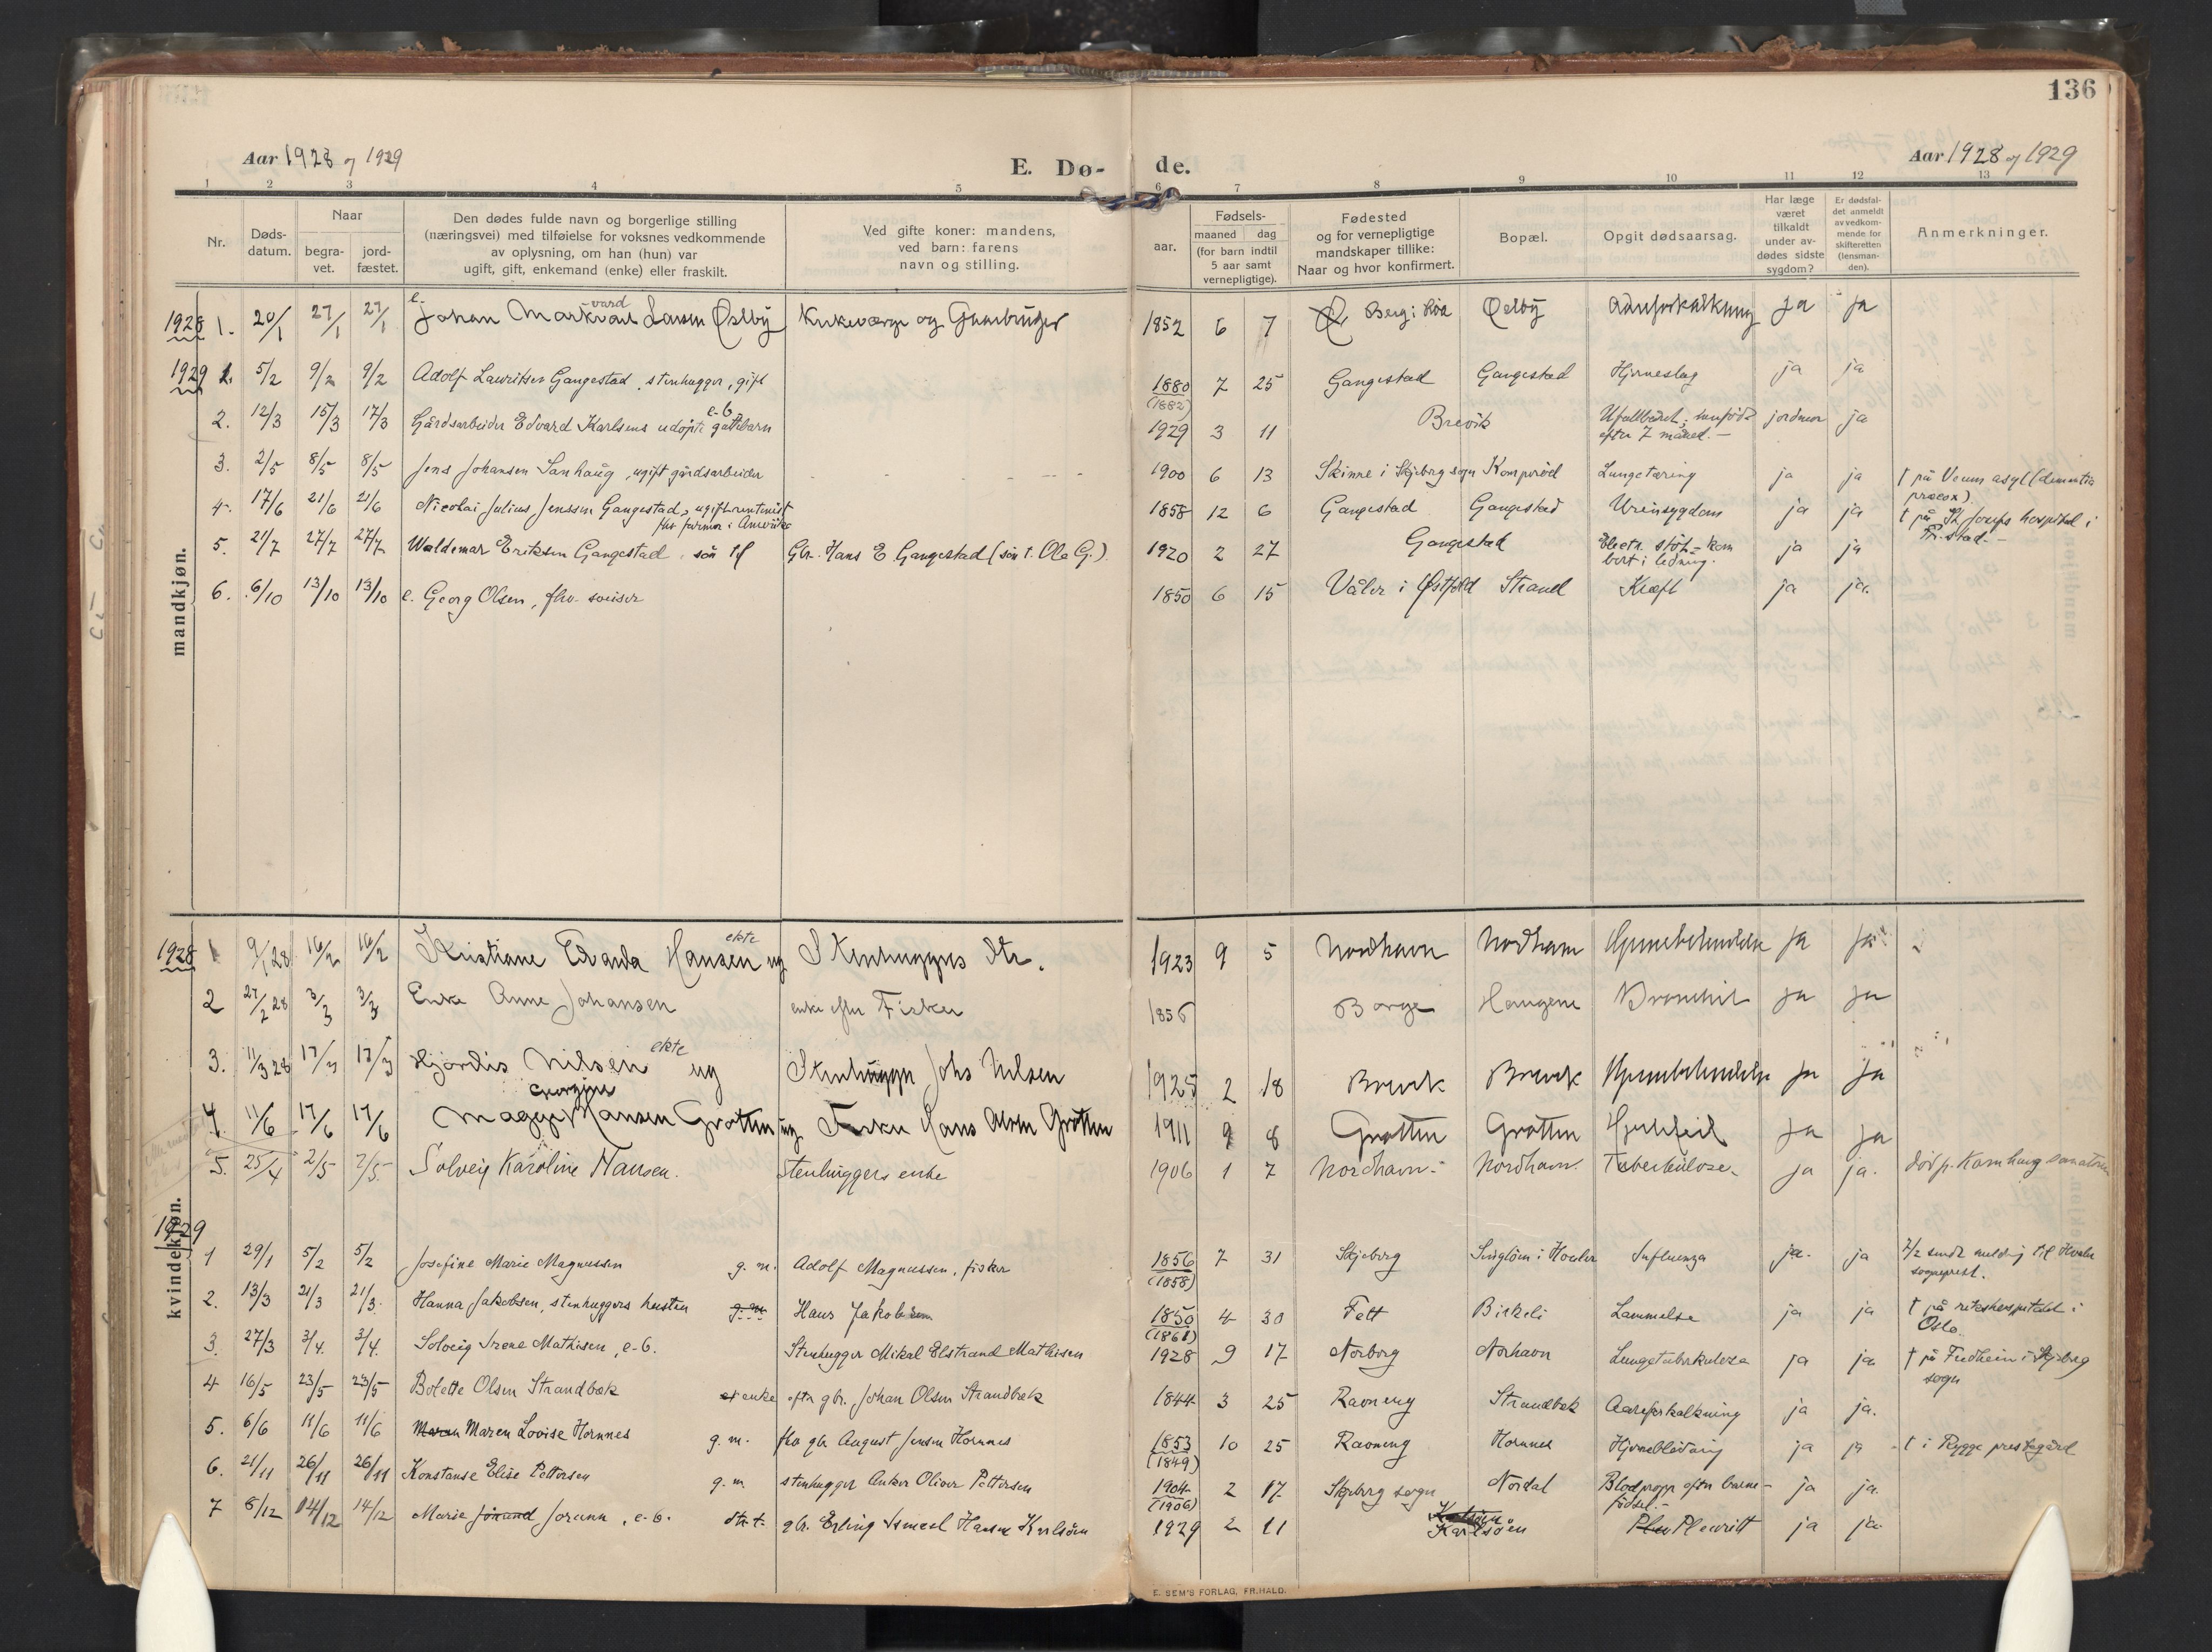 136
Aar 1928 og 1929
E. Dø- de.
Aar 1928 og 1929
1 2 3 4 5 6 7 8 9 10 11 12 13
Nr.
Døds-
datum.
Naar
begra-
vet.
jord-
fæstet.
Den dødes fulde navn og borgerlige stilling
(næringsvei) med tilføielse for voksnes vedkommende
av oplysning, om han (hun) var
ugift, gift, enkemand (enke) eller fraskilt.
Ved gifte koner: mandens,
ved barn: farens
navn og stilling.
Fødsels-
aar.
maaned dag
(for barn indtil
5 aar samt
vernepligtige).
Fødested
og for vernepligtige
mandskaper tillike:
Naar og hvor konfirmert.
Bopæl.
Opgit dødsaarsag.
Har læge
været
tilkaldt
under av-
dødes sidste
sygdom?
Er dødsfal-
det anmeldt
av vedkom-
mende for
skifteretten
(lensman-
den).
Anmerkninger.
mandkjøn.
1928 1. 20/1 27/1 27/1 e. Johan Markvard Larsen Qelby Kirkeværge og Gaardbruger 1852 6 7 Berg i Qelby ja ja
1929 1. 5/2 9/2 9/2 Adolf Lauritsen Gangestad, stenhugger, gift 1880 7 25 Gangestad Gangestad Hjerneslag ja ja
(1882)
2. 12/3 15/3 17/3 Gårdsarbeider Edvard Karlsens udøpte e-b guttebarn 1929 3 11 Brevik jordmor ja
efter 7 måned. -
3. 2/5 8/5 8/5 Jens Johansen Sanhaug, ugift gårdsarbeider 1900 6 13 Skinne i Skjeberg sogn Kamperød Lungetæring ja ja † på Veum asyl (dementia
præcox)
4. 17/6 21/6 21/6 Nicolai Julius Jenssen Gangestad, ugift rentenist 1858 12 6 Gangestad Gangestad Urinsygdom ja ja † på St. Josefs hospital i
fhv farmer i Amerika
Fr.stad. -
5. 21/7 27/7 27/7 Waldemar Eriksen Gangestad, søn til Gbr. Hans E. Gangestad (søn t. Ole G.) 1920 2 27 Gangestad Electr. støt - kom ja ja
bort i ledning.
6. 6/10 13/10 13/10 e. Georg Olsen, fhv. sveiser 1850 6 15 Våler i Østfold Strand Kræft ja ja.
kvindekjøn.
1928 1 9/1 28 16/2 16/2 Kristiane Edvarda Hansen ekte ug Stenhuggers dtr. 1923 9 5 Nordhavn Nordhavn Hjernebetændelse ja ja
2 27/2 28 3/3 3/3 Enke Anne Johansen enke efter Fisker 1856 Borge Haugene Bronchit ja ja
3. 11/3 28 17/3 17/3 Hjördis Nilsen ekte ug Stenhugger Johs Nilsen 1925 2 18 Brevik Brevik Hjernebetændelse ja ja
4. 11/6 17/6 17/6 Magga Georgine Hansen Grøtten ug Fisker Hans Grøtten 1911 9 8 Grøtten Grøtten Hjertefeil ja ja
5. 25/4 2/5 2/5 Solveig Karoline Hansen. Stenhuggers enke 1906 1 7 Nordhavn - Nordhavn. Tuberkulose. ja ja.
1929
1 29/1 5/2 5/2 Josefine Marie Magnussen g. m. Adolf Magnussen, fisker 1856 7 31 Skjeberg Singløen i Hvaler Influenza ja. ja 2/2 sendt melding til Hvaler
(1858)
sogneprest.
2. 13/3 21/3 21/3. Hanna Jakobsen, stenhuggers hustru g. m. Hans Jakobsen 1850 4 30 Tett Birkeli Lammelse ja ja † på rikshospitalet i
(1861)
Oslo.
3. 27/3 3/4. 3/4. Solveig Irene Mathisen, e-b. Stenhugger Mikal Elstrand Mathisen 1928 9 17 Norberg Norhavn Lungetuberkulose ja ja † på Fredheim i Skjeberg
sogn
4 16/5 23/5 23/5 Bolette Olsen Strandbæk enke efter gbr. Johan Olsen Strandbæk 1844 3 25 Ravneng Strandbæk Aareforkalkning ja ja.
5. 6/6 11/6 11/6 Maren Maren Lovise Hornnes g. m. fhv gbr August Jensen Hornnes 1853 10 25 Ravneng Hornnes Hjerneblødning ja ja † i Rygge prestegård
(1849)
6. 21/11 26/11 26/11 Konstanse Elise Pettersen g. m. stenhugger Anker Oliver Pettersen 1904 2 17 Skjeberg sogn Nordal Blodpropp efter barne- ja ja.
(1906)
fødsel. -
7 8/12 14/12 14/12 Marie Jorand Jorunn, e-b. dtr. t. gbr. Erling Ismael Hansen Karlsøen 1929 2 11 Karlsøen Pleu Pleuritt ja ja.
E. SEM'S FORLAG, FR.HALD.